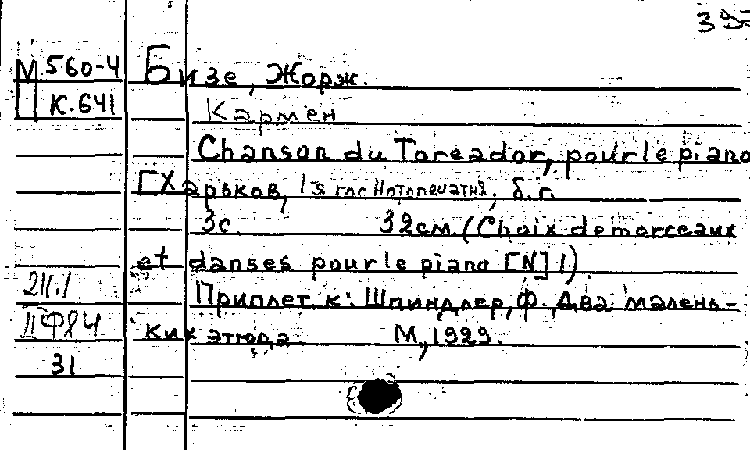 М 560-4 Бизе, Жорж.
К.641 Кармен
Chanson du Toreador, pour le piano
[Харьков, 1я гос Нотопечатня, б.г.
3с. 32см. (Choix de morceaux
et danses pour le piano [N] 1)
211.1 Приплет к: Шпиндлер, Ф. Два малень-
ПФ84 ких этюда. М, 1929.
31